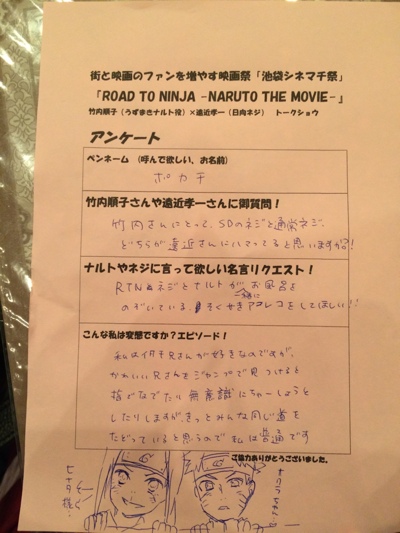 街と映画のファンを増やす映画祭「池袋シネマチ祭」
「ROAD TO NINJA -NARUTO THE MOVIE-」
竹内順子(うずまきナルト役)×遠近孝一(日向ネジ) トークショウ
アンケート
ペンネーム (呼んで欲しい、お名前)
ポカチ
竹内順子さんや遠近孝一さんに御質問!
竹内さんにとって、SDのネジと通常ネジ、
どちらが遠近さんにハマってると思いますか?!
ナルトやネジに言って欲しい名言リクエスト!
RTNのネジとナルトがお風呂を
一緒に
のぞいている、そくせきアフレコをしてほしい!!
こんな私は変態ですか?エピソード!
私は兄さんが好きなのですが、
かわいい兄さんをジャンプで見つけると
指でなでたり無意識にちゅーしようと
したりしますがきっとみんな同じ道を
たどっていると思うので私は普通です
ご協力ありがとうございました。
ヒナタ様…